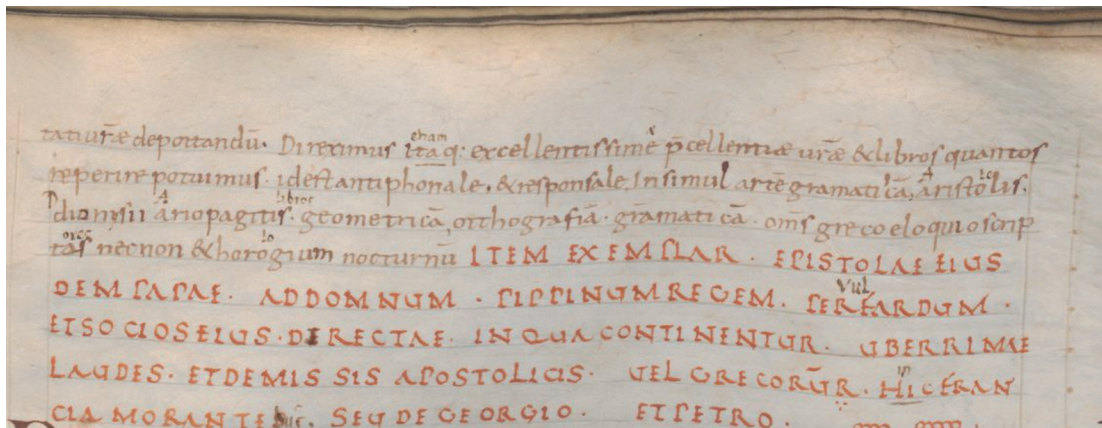 tati urāe deportandū. Direximus itaq: excellentissimē p̄cellentiae urāe & libros quantos
reperire potuimus. id est antiphonale. & responsale. Insimul artē gramaticā. aristolis.
dionisii ariopagitis. geometricā, orthografiā. grāmaticā. om̄s greco eloquio scrip
tas necnon & horogium nocturnū ITEM EXEMPLAR. EPISTOLAE EIUS
DEM PAPAE. AD DOMNUM. PIPPINUM REGEM. PER FARDUM.
ET SOCIOS EIUS. DIRECTAE. IN QUA CONTINENTUR. UBERRIMAE
LAUDES. ET DE MISSIS APOSTOLICIS. UEL GRECORŪR. HIC FRAN
CIA MORANTE SEU DE GEORGIO. ET PETRO.